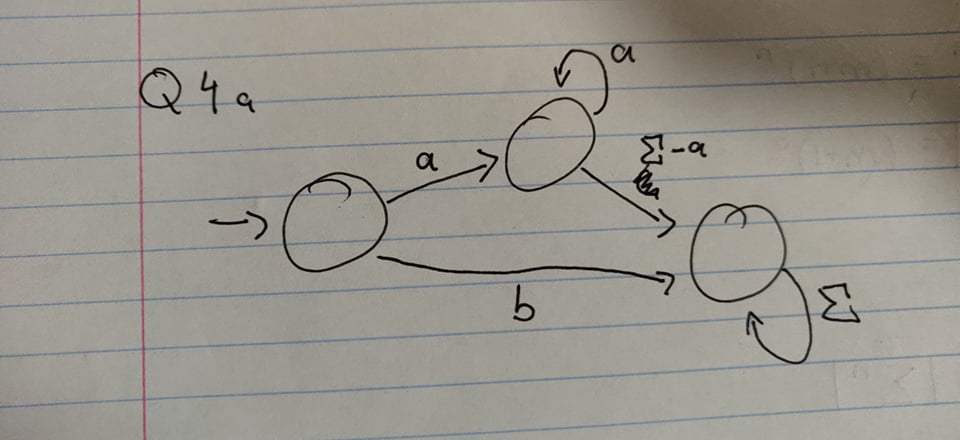 Q 4 a
a
a
Σ - a
b
Σ